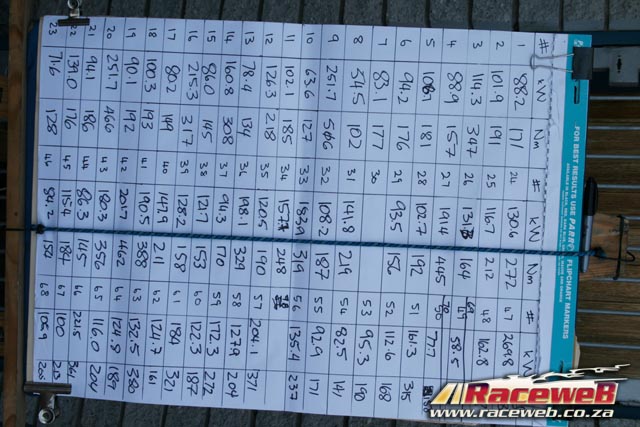 FOR BEST RESULTS USE PARROT FLIPCHART MARKERS
# kW Nm # kW Nm # kW
1 88.2 171 24 130.6 272 47 209.8
2 101.9 191 25 116.7 212 48 162.8
3 114.3 347 26 164 58.5
4 88.9 157 27 191.4 445 50 77.7
5 108.7 181 28 102.7 192 51 161.3 315
6 94.2 176 29 93.5 156 52 112.6 168
7 83.1 177 30 53 95.3 190
8 54.5 102 31 141.8 219 54 82.5 141
9 251.7 506 32 108.2 187 55 92.9 171
10 63.6 127 33 182.9 319 56 135.4 237
11 102.1 185 34 157.7 248
12 126.3 218 35 120.5 190 57 204.1 371
13 78.4 134 36 198.1 329 58 127.9 204
14 160.8 308 37 94.3 170 59 172.3 272
15 86.0 145 38 121.7 153 60 122.3 187
16 215.3 317 39 128.2 158 61 184 321
17 80.2 149 40 147.9 211 62 124.7 161
18 100.3 193 41 190.5 388 63 132.5 380
19 90.1 192 42 201.7 462 64 124.8 189
20 251.7 466 43 180.3 356 65 116.0 204
21 94.1 186 44 86.3 145 66 221.5 361
22 139.0 176 45 115.4 184 67 100
23 71.6 128 46 84.2 150 68 105.9 205
RaceweB
www.raceweb.co.za